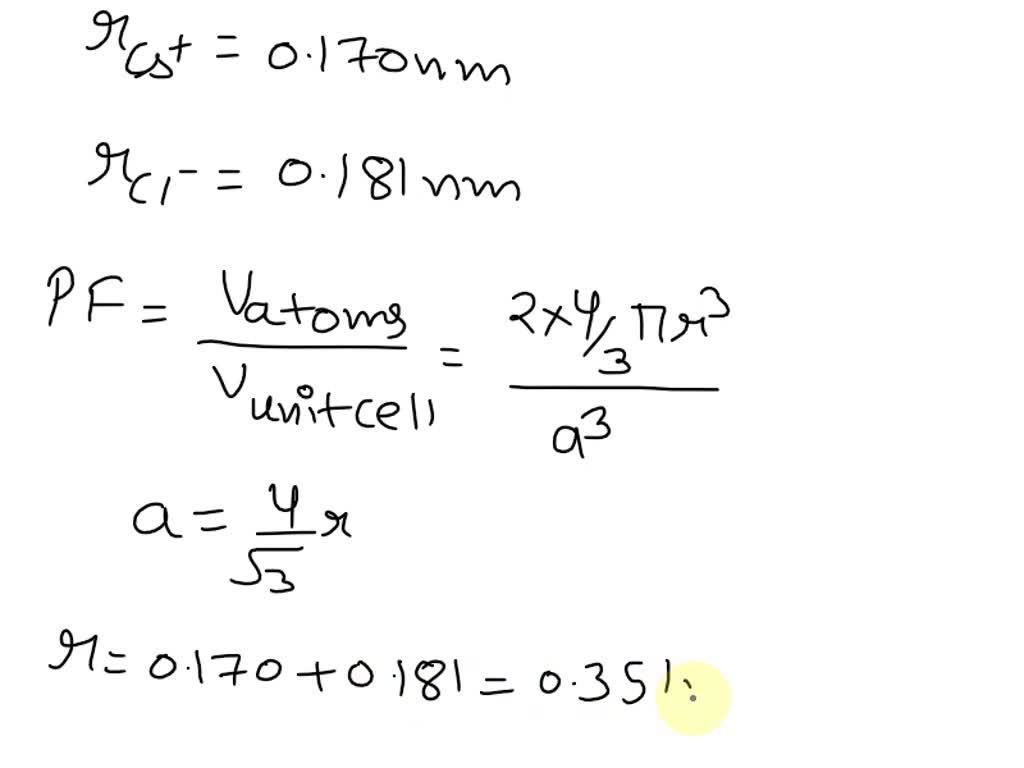 r_Cs⁺ = 0.170nm
r_Cl⁻ = 0.181nm
PF = Vatoms / Vunitcell = 2×4/3 πr³ / a³
a = 4/√3 r
r = 0.170 + 0.181 = 0.351